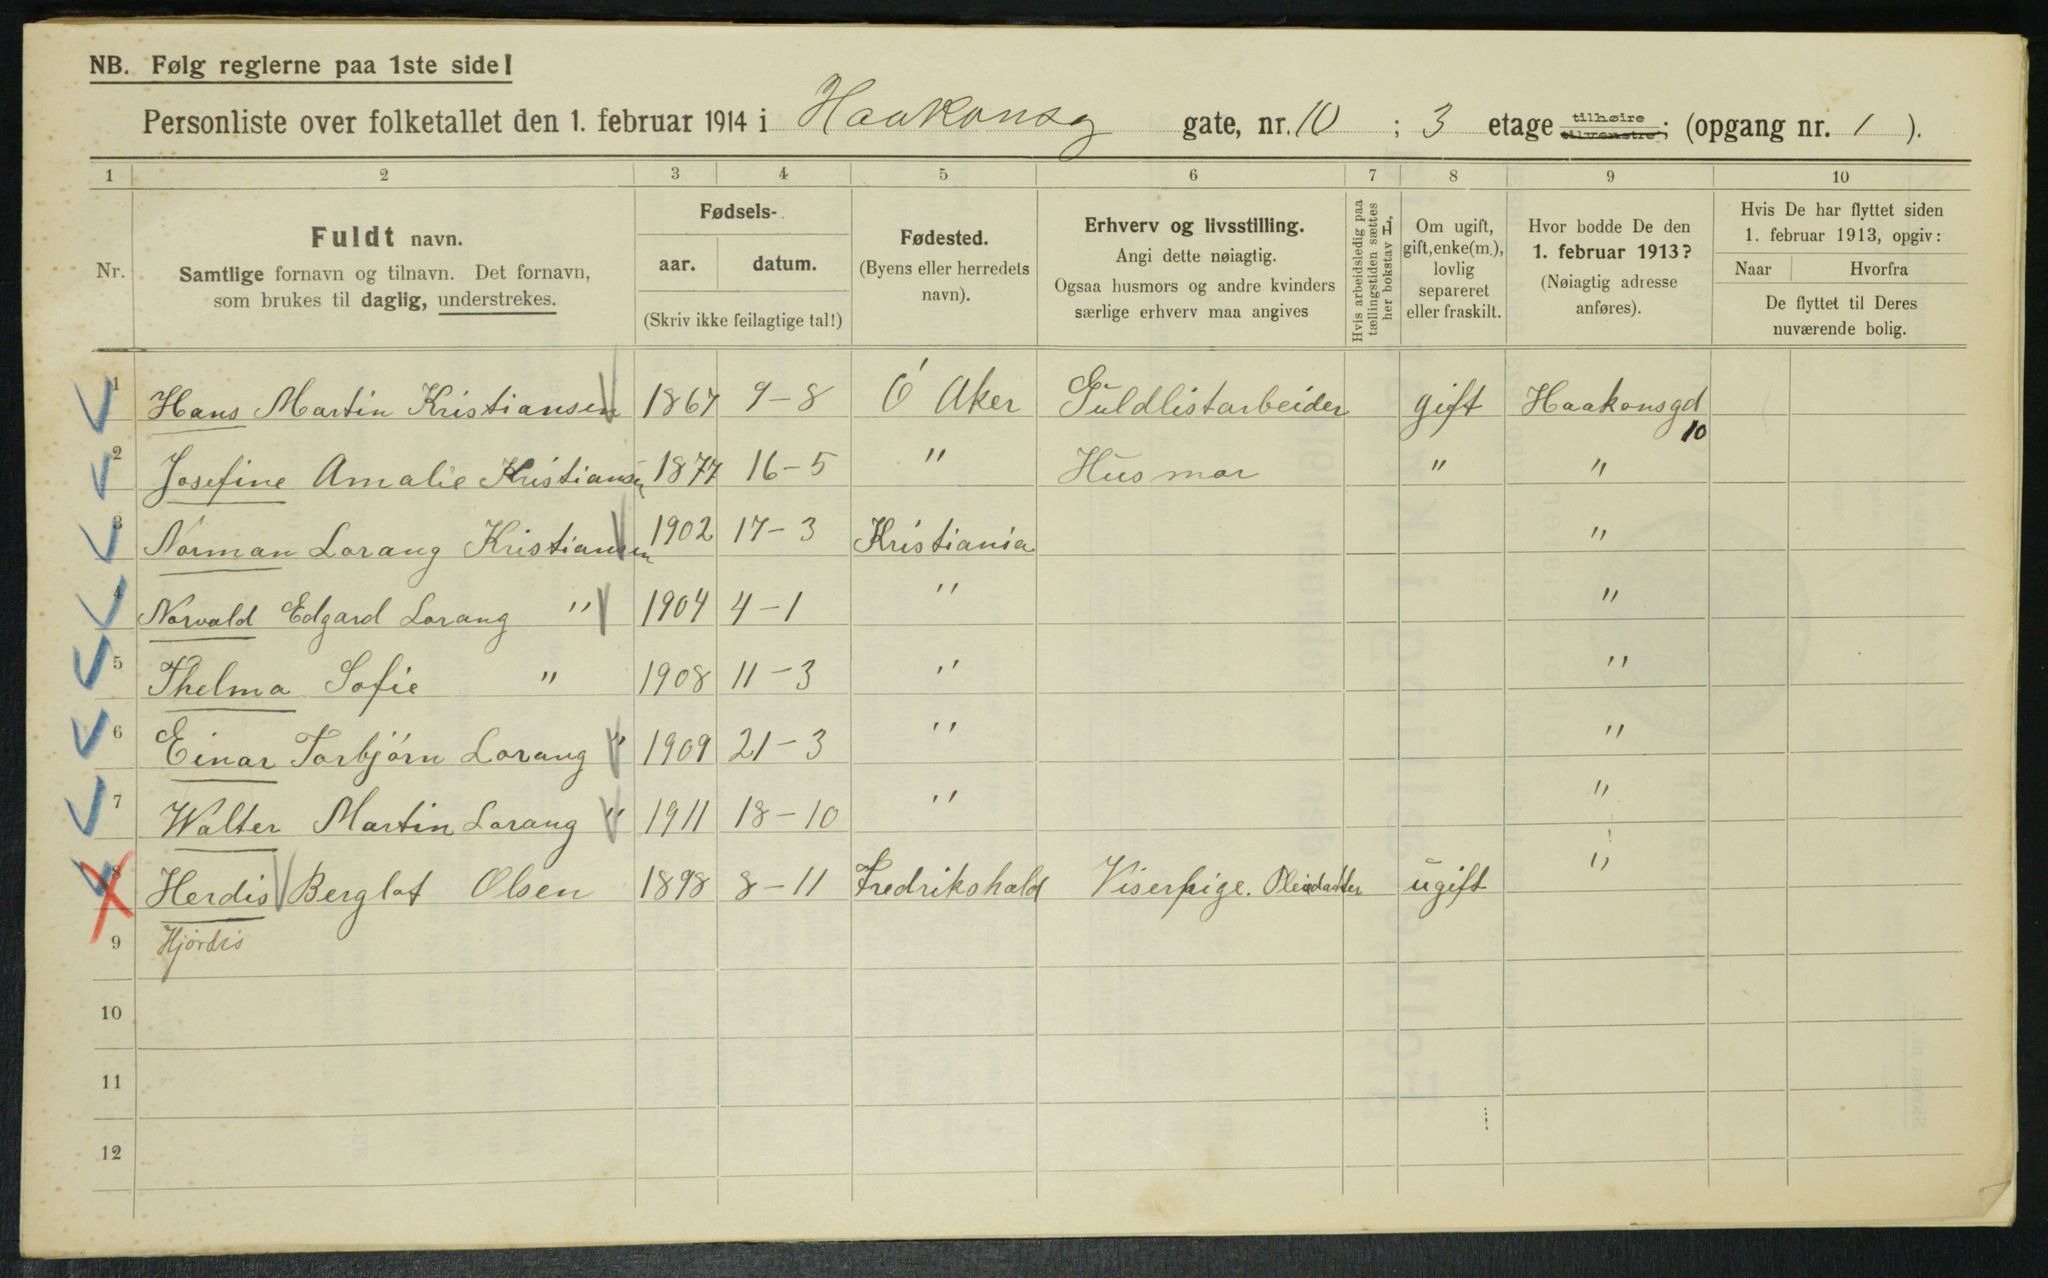 NB. Følg reglerne paa 1ste side!
Personliste over folketallet den 1. februar 1914 i Haakonsg gate, nr. 10 ; 3 etage tilhøire tilvenstre; (opgang nr. 1 ).
1 2 3 4 5 6 7 8 9 10
Nr.
Fuldt navn.
Samtlige fornavn og tilnavn. Det fornavn,
som brukes til daglig, understrekes.
Fødsels-
aar. datum.
(Skriv ikke feilagtige tal!)
Fødested.
(Byens eller herredets
navn).
Erhverv og livsstilling.
Angi dette nøiagtig.
Ogsaa husmors og andre kvinders
særlige erhverv maa angives
Hvis arbeidsledig paa
tællingstiden sættes
her bokstav L.
Om ugift,
gift, enke(m.),
lovlig
separeret
eller fraskilt.
Hvor bodde De den
1. februar 1913?
(Nøiagtig adresse
anføres).
Hvis De har flyttet siden
1. februar 1913, opgiv:
Naar Hvorfra
De flyttet til Deres
nuværende bolig.
1 Hans Martin Kristiansen 1867 9-8 Ø Aker Guldlistarbeider gift Haakonsgd
10
2 Josefine Amalie Kristiansen 1877 16-5 " Husmor " "
3 Norman Lorang Kristiansen 1902 17-3 Kristiania "
4 Norvald Edgard Lorang " 1904 4-1 " "
5 Thelma Sofie " 1908 11-3 " "
6 Einar Torbjørn Lorang " 1909 21-3 " "
7 Walter Martin Lorang " 1911 18-10 " "
8 Herdis Berglot Olsen 1898 8-11 Fredrikshald Viserpige. ugift "
9 Hjördis
10
11
12